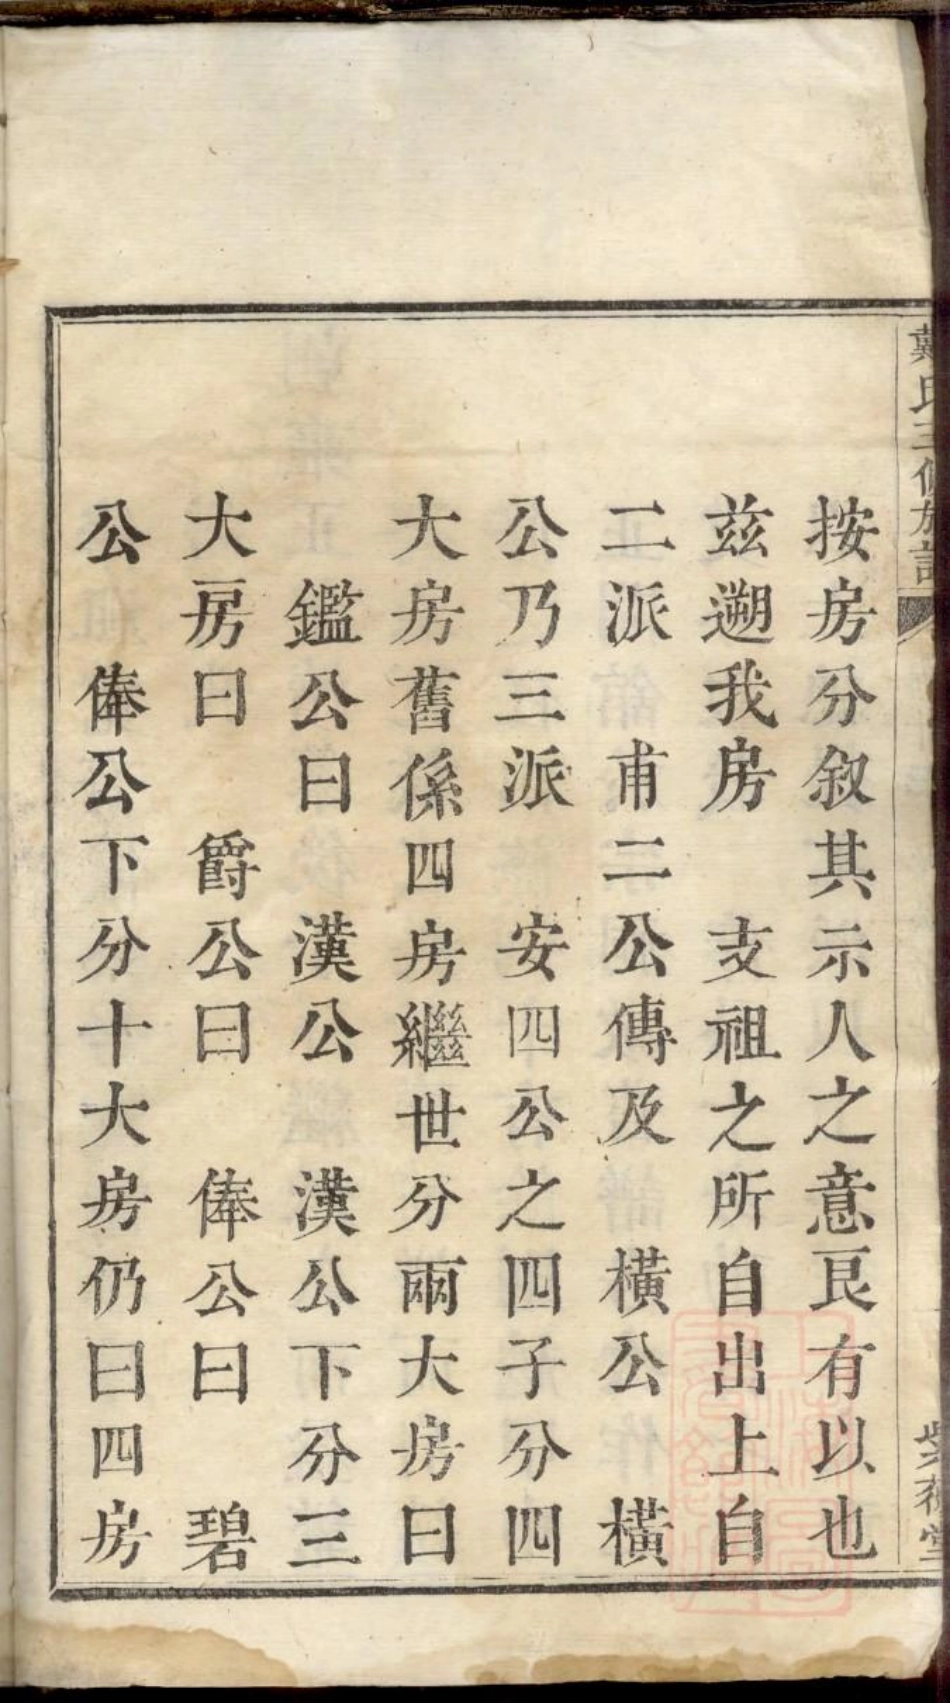 戴氏三修族譜
紫荷堂
按房分叙其示人之意艮有以也
茲遡我房　支祖之所自出上自
二派　甫二公傳及　橫公　橫
公乃三派　安四公之四子分四
大房舊係四房繼世分兩大房曰
鑑公曰　漢公　漢公下分三
大房曰　爵公曰　俸公曰　碧
公　俸公下分十大房仍曰四房